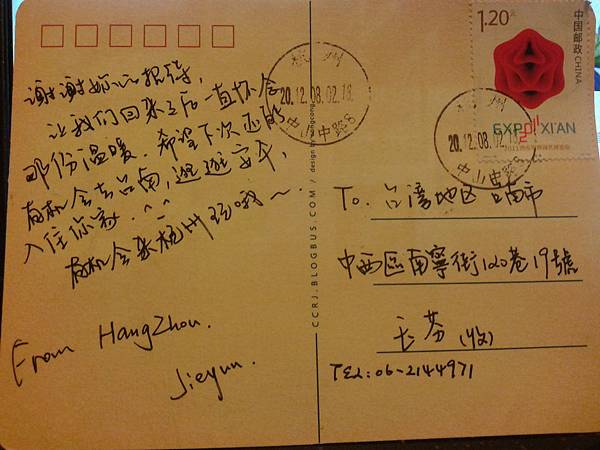 谢谢妳的招待，
让我们回来之后一直怀念
那份温暖．希望下次还能
有机会去台南，逛逛安平，
入住你家．^_^
有机会来杭州玩哦～．
From HangZhou.
Jieyun.
CCRJ.BLOGBUS.COM / design by
杭州
20.12.08.02.18
中山中路8
1.20元
中国邮政 CHINA
EXPO 2011 XI'AN
杭州
20.12.08.02.18
中山中路8
To. 台湾地区 台南市
中西區南寧街120巷19號
(收)
TEL：06-2144971